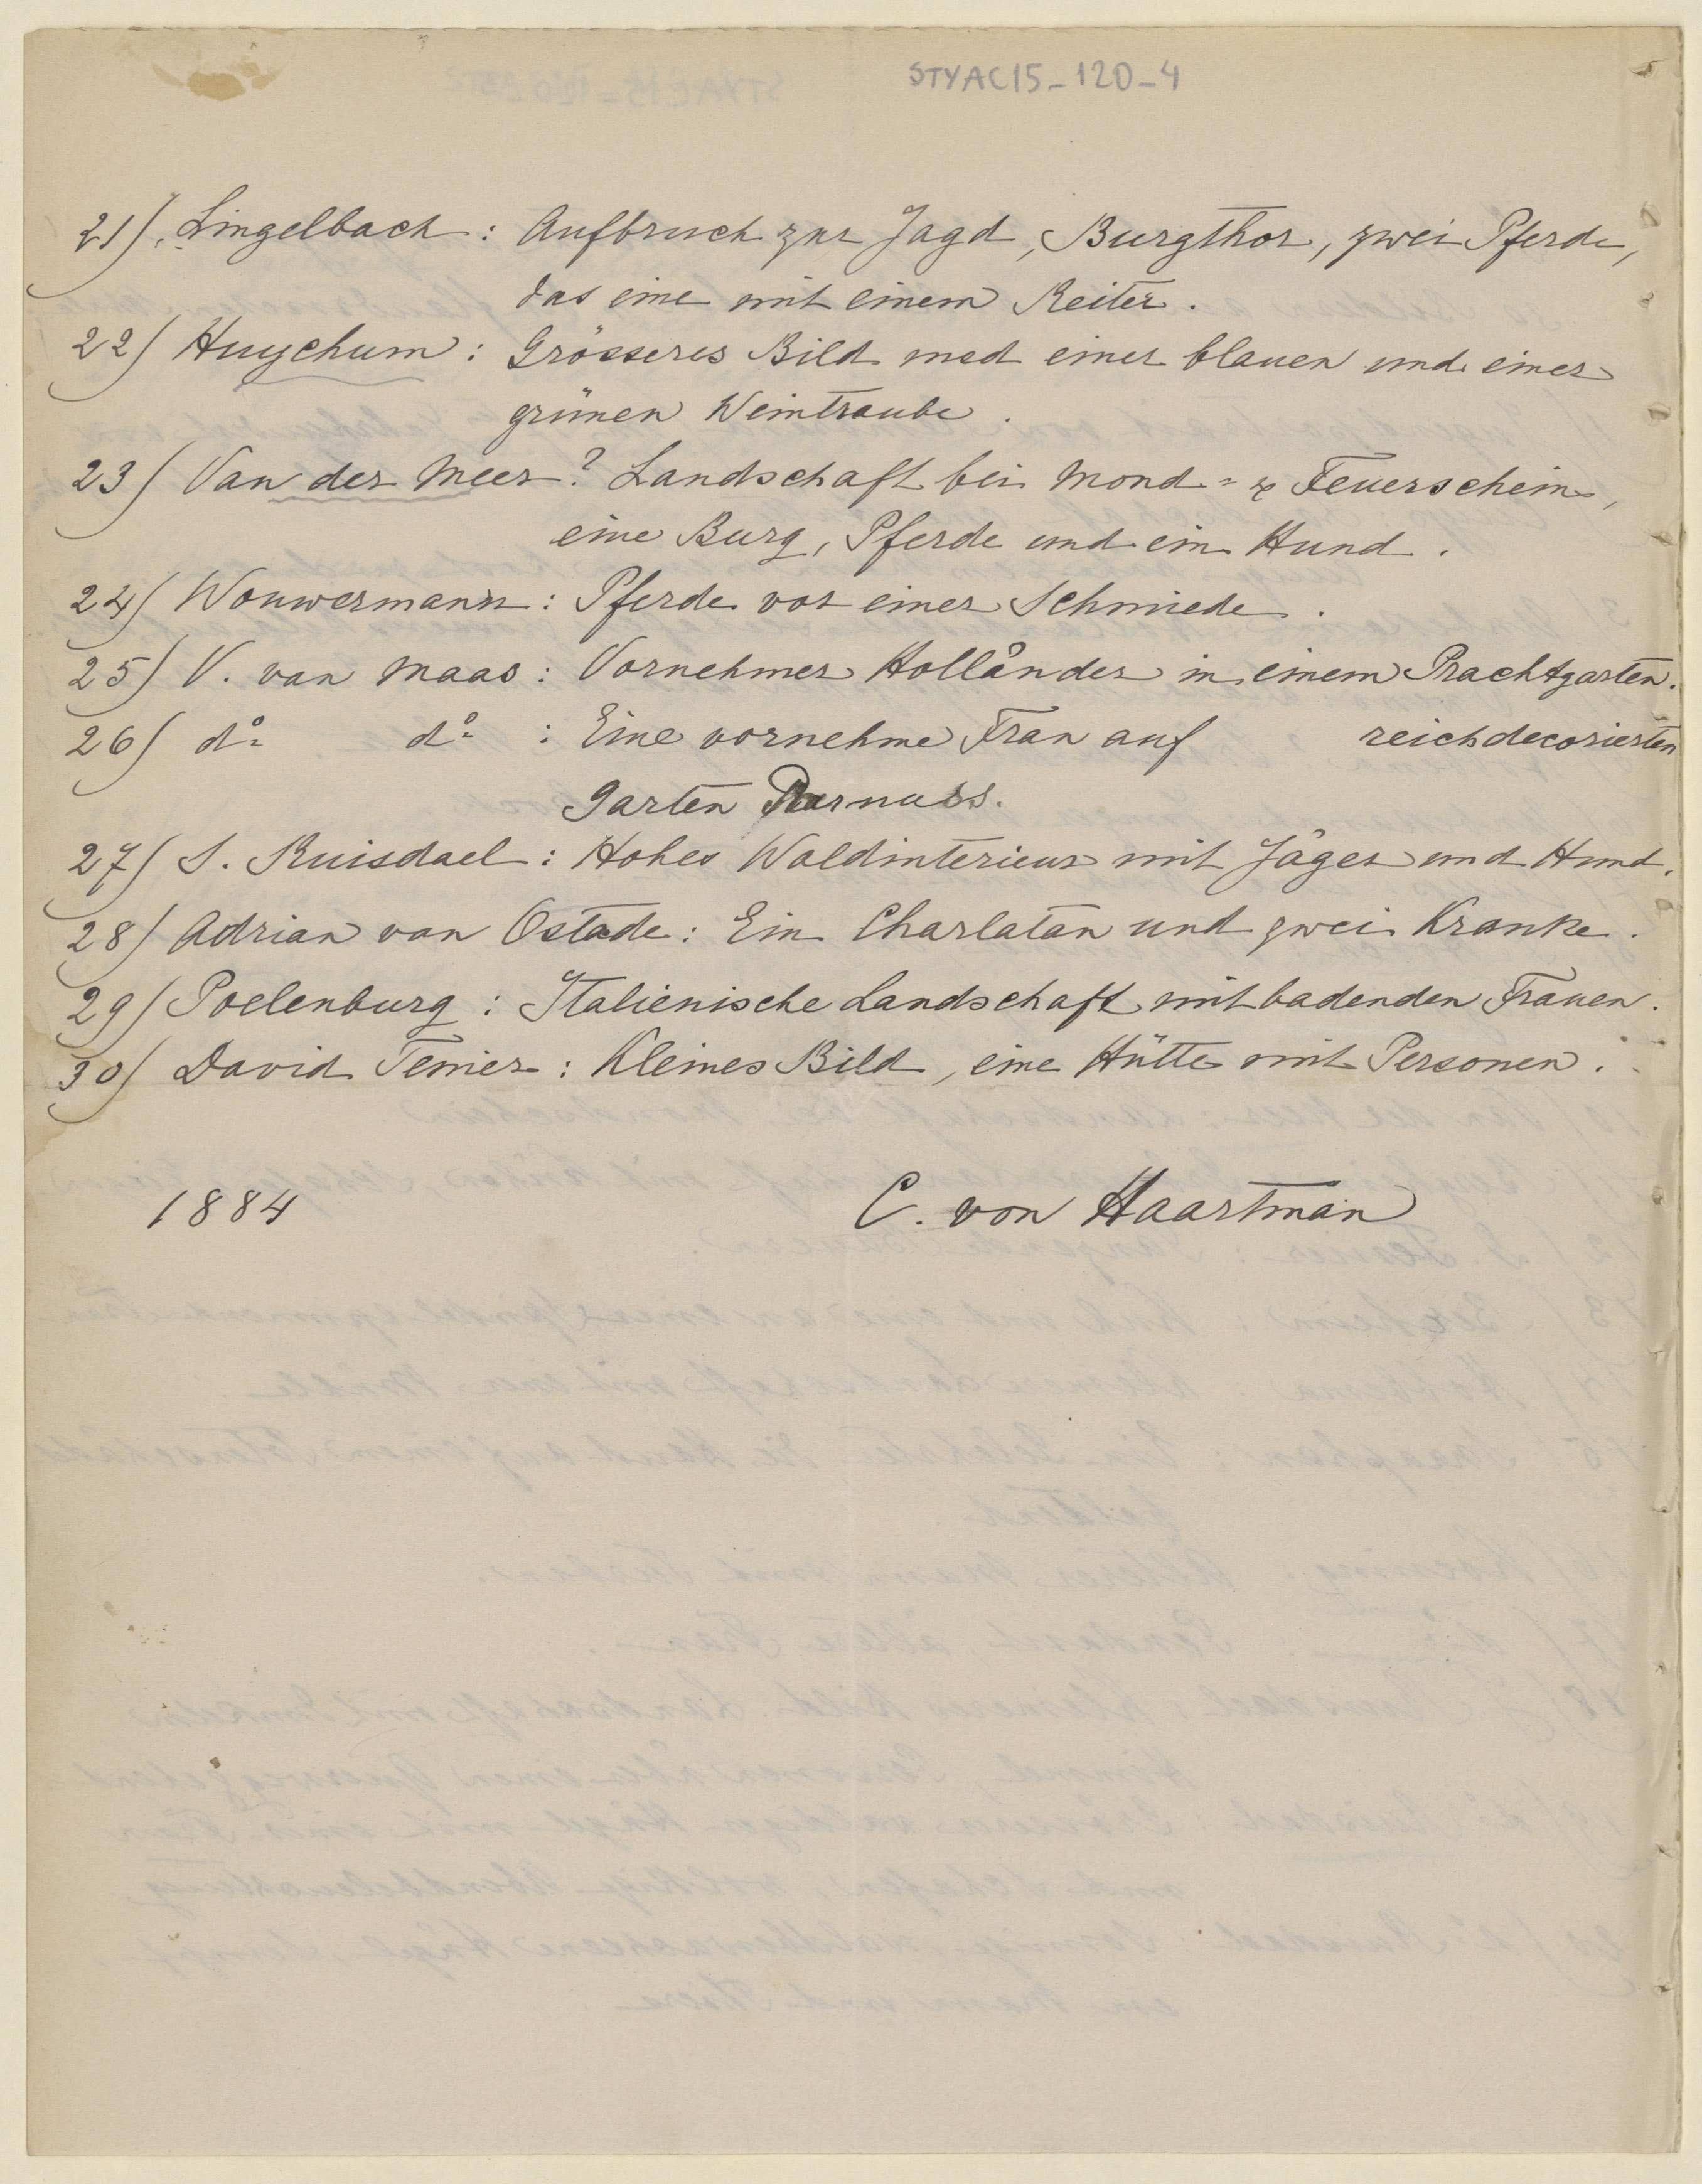 STYAC15_120_4
21) Lingelbach: Aufbruch zur Jagd, Burgthor, zwei Pferde,
das eine mit einem Reiter.
22) Huychum: Grösseres Bild med einer blauen und einer
grünen Weintraube.
23) Van der Meer? Landschaft bei Mond- & Feuerschein,
eine Burg, Pferde und ein Hund.
24) Wouwermann: Pferde vor einer Schmiede.
25) V. van Maas: Vornehmer Holländer in einem Prachtgarten.
26) do do: Eine vornehme Frau auf reichdecorierten
Garten
27) S. Ruisdael: Hohes Waldinterieur mit Jäger und Hund.
28) Adrian van Ostade: Ein Charlatan und zwei Kranke.
29) Poelenburg: Italienische Landschaft mit badenden Frauen.
30) David Tenier: Kleines Bild, eine Hütte mit Personen.
1884 C. von Haartman